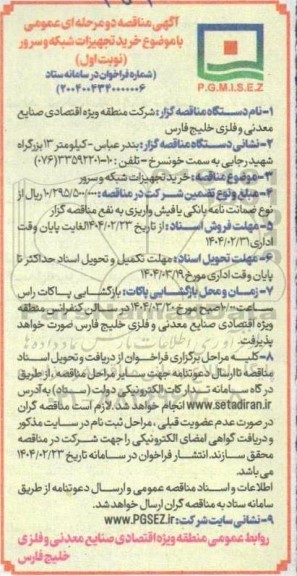 آگهی مناقصه دو مرحله ای عمومی
با موضوع خرید تجهیزات شبکه و سرور
(نوبت اول)
(شماره فراخوان در سامانه ستاد
۲۰۰۴۰۰۴۳۴۰۰۰۰۰۰۶)
P.G.M.I.S.E.Z
۱- نام دستگاه مناقصه گزار: شرکت منطقه ویژه اقتصادی صنایع
معدنی و فلزی خلیج فارس
۲- نشانی دستگاه مناقصه گزار: بندرعباس - کیلومتر ۱۳ بزرگراه
شهید رجایی به سمت خونسرخ - تلفن: ۱۰-۳۳۵۹۲۲۰۱ (۰۷۶)
۳- موضوع مناقصه: خرید تجهیزات شبکه و سرور
۴- مبلغ و نوع تضمین شرکت در مناقصه: ۱۰/۲۹۵/۵۰۰/۰۰۰ ریال از
نوع ضمانت نامه بانکی یا فیش واریزی به نفع مناقصه گزار
۵- مهلت فروش اسناد: از تاریخ ۱۴۰۴/۰۲/۲۳ لغایت پایان وقت
اداری ۱۴۰۴/۰۲/۳۱
۶- مهلت تحویل اسناد: مهلت تکمیل و تحویل اسناد حداکثر تا
پایان وقت اداری مورخ ۱۴۰۴/۰۳/۱۹
۷- زمان و محل بازگشایی پاکات: بازگشایی پاکات راس
ساعت ۱۰/۰۰ صبح مورخ ۱۴۰۴/۰۳/۲۰ در سالن کنفرانس منطقه
ویژه اقتصادی صنایع معدنی و فلزی خلیج فارس صورت خواهد
پذیرفت.
۸- کلیه مراحل برگزاری فراخوان از دریافت و تحویل اسناد
مناقصه تا ارسال دعوتنامه جهت سایر مراحل مناقصه، از طریق
درگاه سامانه تدارکات الکترونیکی دولت (ستاد) به آدرس
www.setadiran.ir انجام خواهد شد. لازم است مناقصه گران
در صورت عدم عضویت قبلی، مراحل ثبت نام در سایت مذکور
و دریافت گواهی امضای الکترونیکی را جهت شرکت در مناقصه
محقق سازند. انتشار فراخوان در سامانه تاریخ ۱۴۰۴/۰۲/۲۳
می باشد.
اطلاعات و اسناد مناقصه عمومی و ارسال دعوتنامه از طریق
سامانه ستاد به مناقصه گران ارسال خواهد شد.
۹- نشانی سایت شرکت: www.PGSEZ.ir
روابط عمومی منطقه ویژه اقتصادی صنایع معدنی و فلزی
خلیج فارس